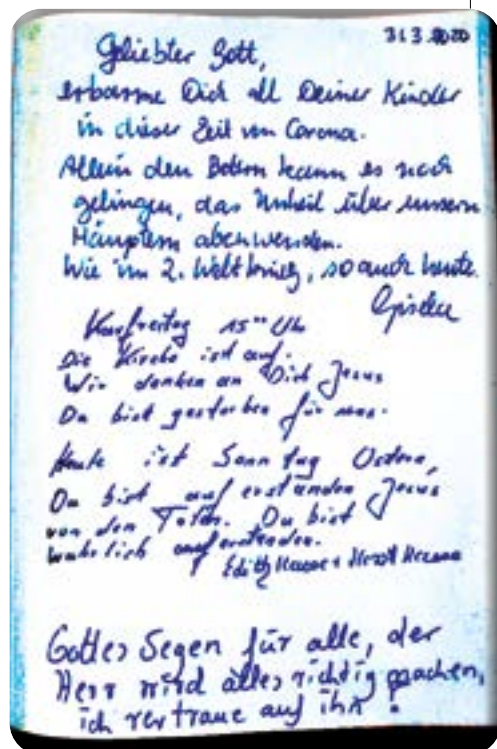 31.3.2020
Geliebter Gott,
erbarme Dich all Deiner Kinder
in dieser Zeit von Corona.
Allein den Betern kann es noch
gelingen, das Unheil über unsern
Häuptern abzuwenden.
Wie im 2. Weltkrieg, so auch heute.
Gisela
Karfreitag 15°° Uh
Die Kirche ist auf.
Wir denken an Dich Jesus
Du bist gestorben für uns.
Heute ist Sonntag Ostern,
Du bist auferstanden Jesus
von den Toten. Du bist
wahrlich auferstanden.
Edith + Horst
Gottes Segen für alle, der
Herr wird alles richtig machen,
ich vertraue auf ihn !